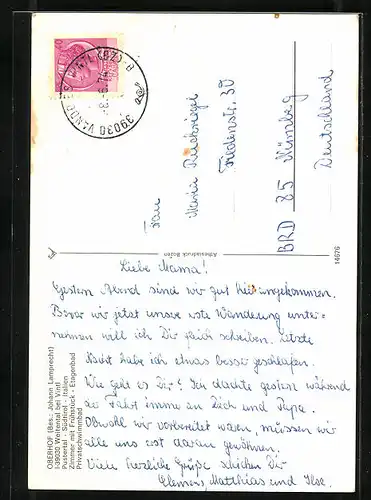 Liebe Mama!
Gestern Abend sind wir gut hier angekommen.
Bevor wir jetzt unsere erste Wanderung unter-
nehmen will ich Dir gleich schreiben. Letzte
Nacht habe ich etwas besser geschlafen.
Wie geht es Dir? Ich dachte gestern während
der Fahrt immer an Dich und Papa.
Obwohl wir vorbereitet waren, müssen wir
alle uns erst daran gewöhnen.
Viele herzliche Grüße schicken Dir
Clemens, Matthias und Ilse.
Frau
Maria
Friedenstr. 30
BRD 85 Nürnberg
Deutschland
OBERHOF (Bes.: Johann Lamprecht)
I-39030 Weitental bei Vintl
Pustertal - Südtirol - Italien
Zimmer mit Frühstück - Etagenbad
Privatschwimmbad
Athesiadruck Bozen
14676
39030 VANDOIES (BZ)
-8.-6.74